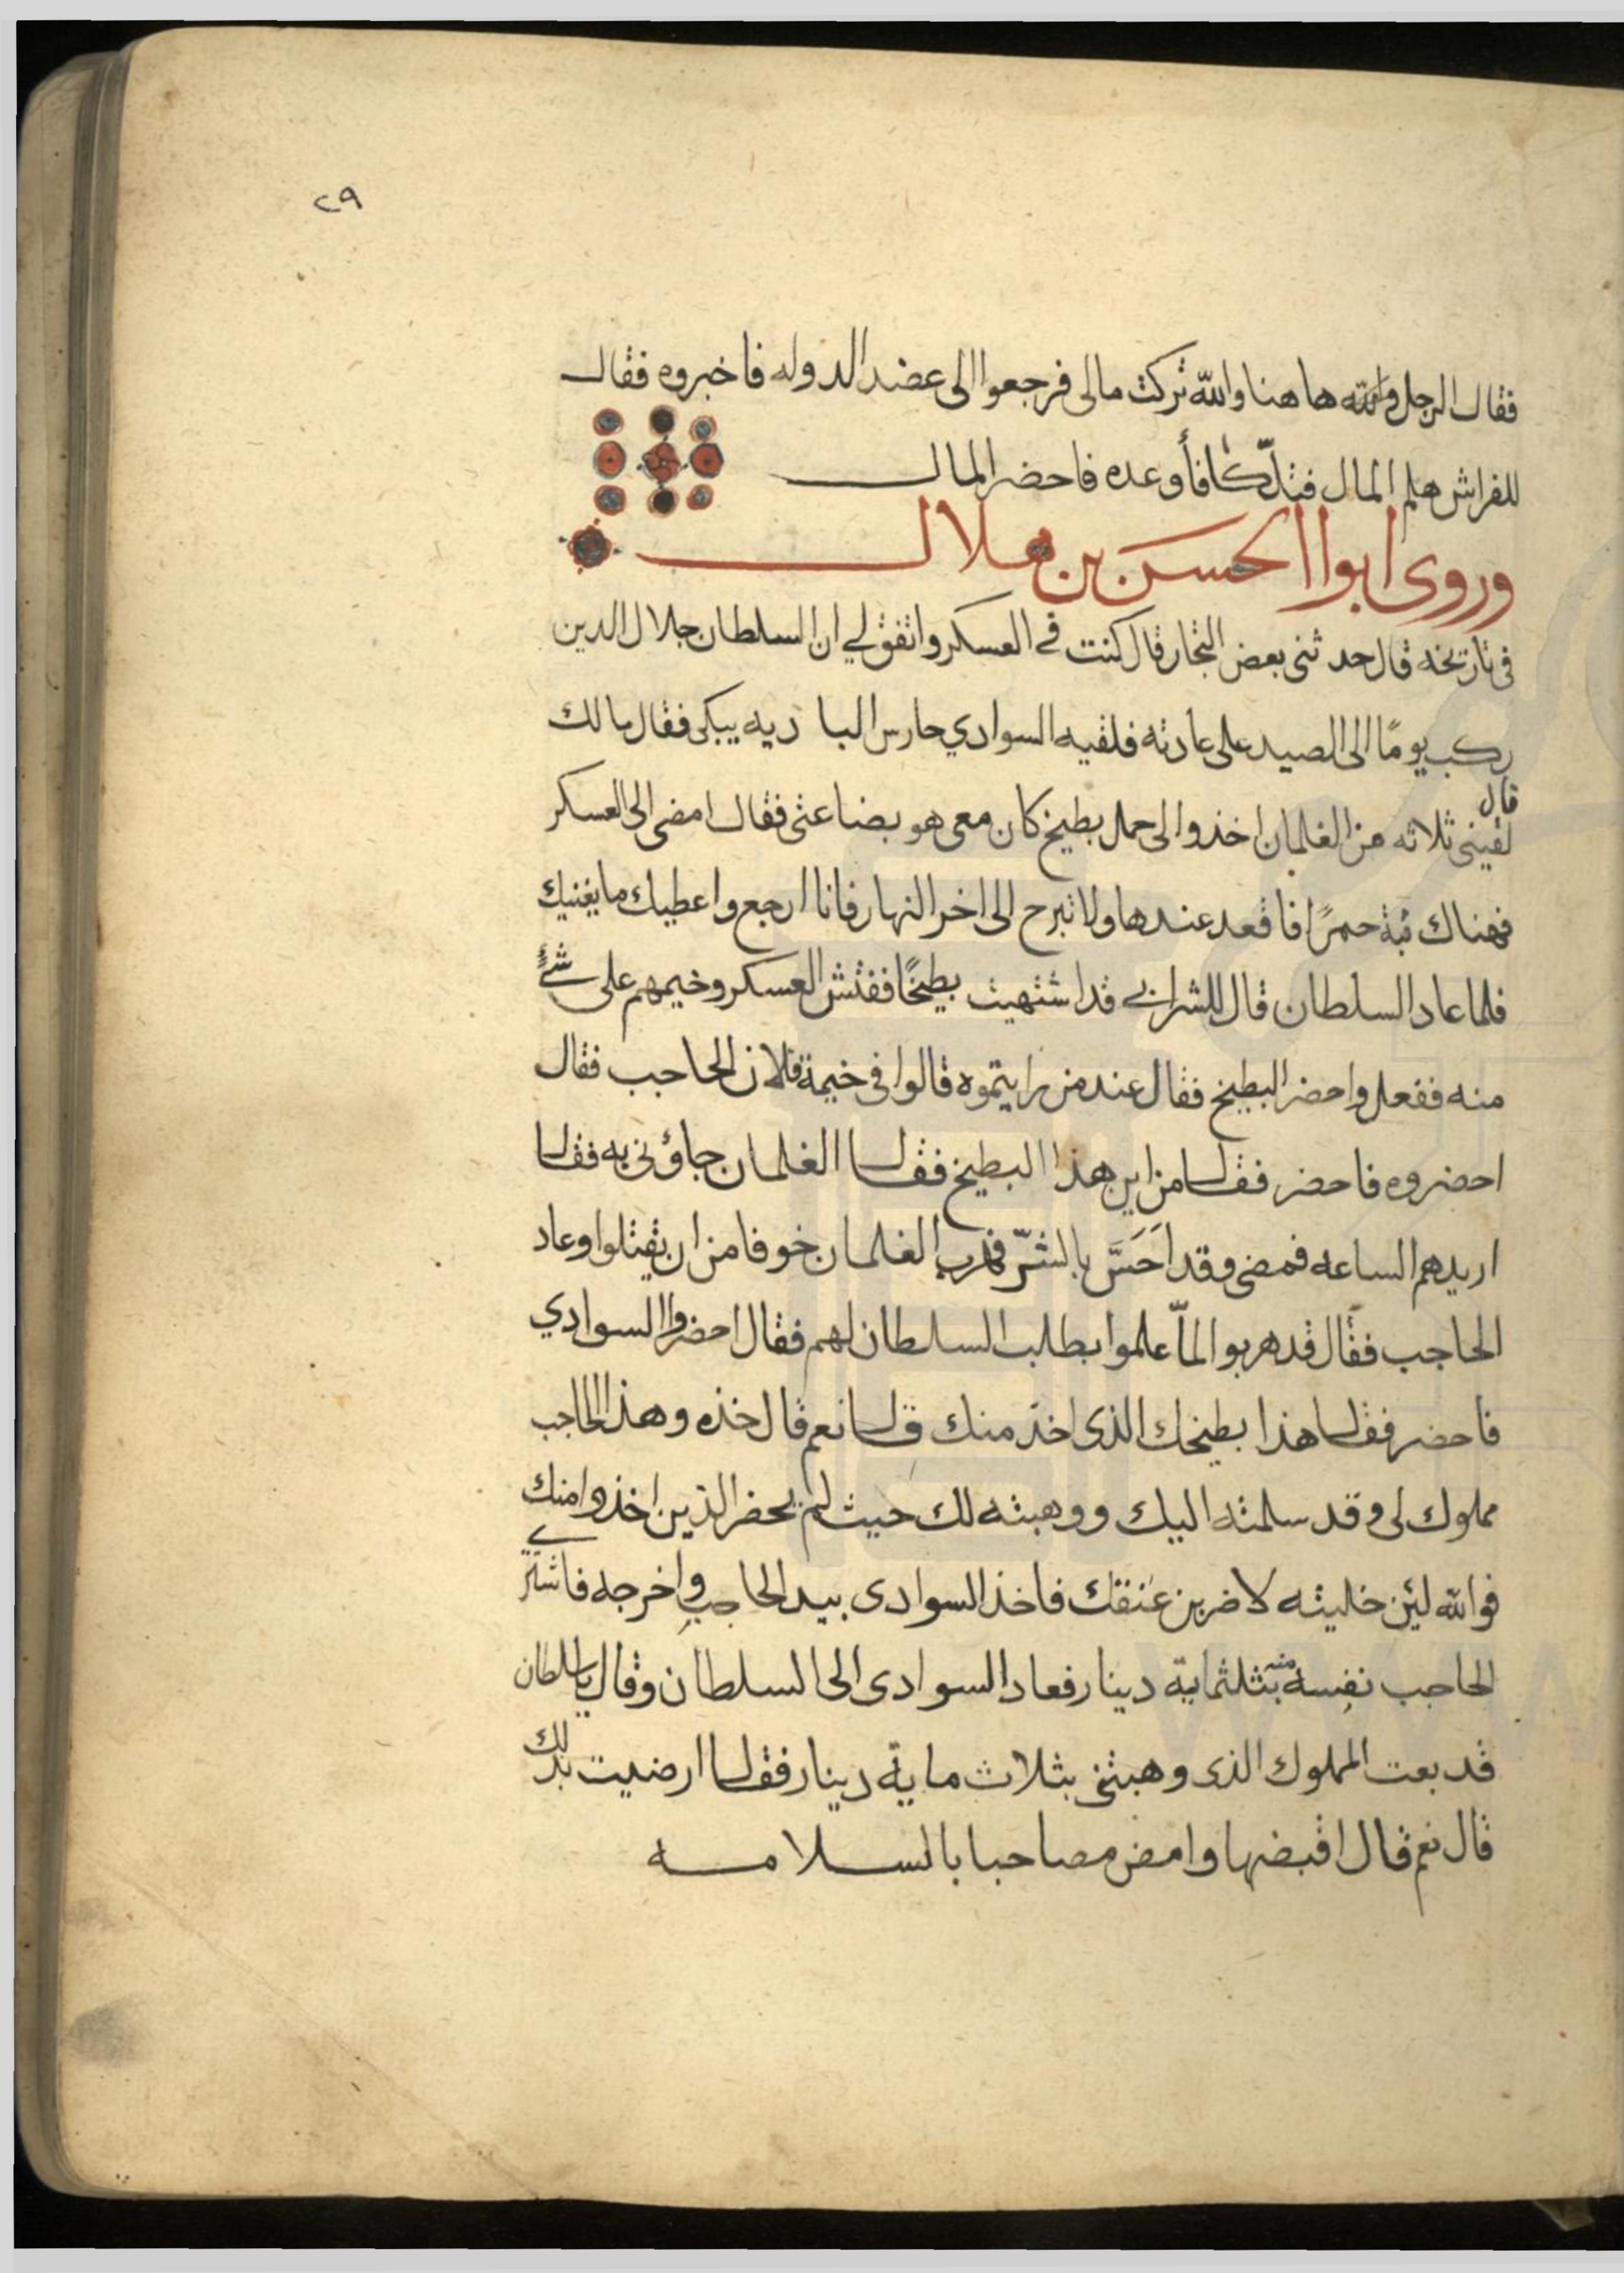 ٢٩
فقال الرجل والله هاهنا والله تركت مالى فرجعوا الى عضد الدوله فاخبروه فقال
للفراش هلم المال فتلكأ فأوعده فاحضر المال
وروى ابوا الحسن بن هلال
فى تاريخه قال حدثنى بعض التجار قال كنت في العسكر واتفق لي ان السلطان جلال الدين
ركب يومًا الى الصيد على عادته فلقيه السوادي حارس البا ديه يبكى فقال مالك
قال
لقينى ثلاثه من الغلمان اخذوا لى حمل بطيخ كان معى هو بضاعتى فقال امضى الى العسكر
فهناك قبة حمرًا فاقعد عندها ولا تبرح الى اخر النهار فانا ارجع واعطيك ما يغنيك
فلما عاد السلطان قال للشرابي قد اشتهيت بطيخًا ففتش العسكر وخيمهم على شئٍ
منه ففعل واحضر البطيخ فقال عند من رايتموه قالوا فى خيمة فلان الحاجب فقال
احضروه فاحضر فقال من اين هذا البطيخ فقال الغلمان جاؤنى به فقال
اريدهم الساعه فمضى وقد احَسَّ بالشرّ فهرب الغلمان خوفا من ان يقتلوا وعاد
الحاجب فقال قد هربوا لمّا علموا بطلب السلطان لهم فقال احضروا السوادي
فاحضر فقال هذا بطيخك الذى اخذ منك قال نعم قال خذه وهذا الحاجب
مملوك لى وقد سلمته اليك ووهبته لك حيث لم يحضر الذين اخذوا منك
فوالله لئن خليته لاضربن عنقك فاخذ السوادى بيد الحاجب واخرجه فاشترے
الحاجب نفسه منه بثلثماية دينار فعاد السوادى الى السلطان وقال يا سلطان
قد بعت المملوك الذى وهبتنى بثلاث ماية دينار فقال ارضيت بذلك
قال نعم قال اقبضها وامض مصاحبا بالسلامه